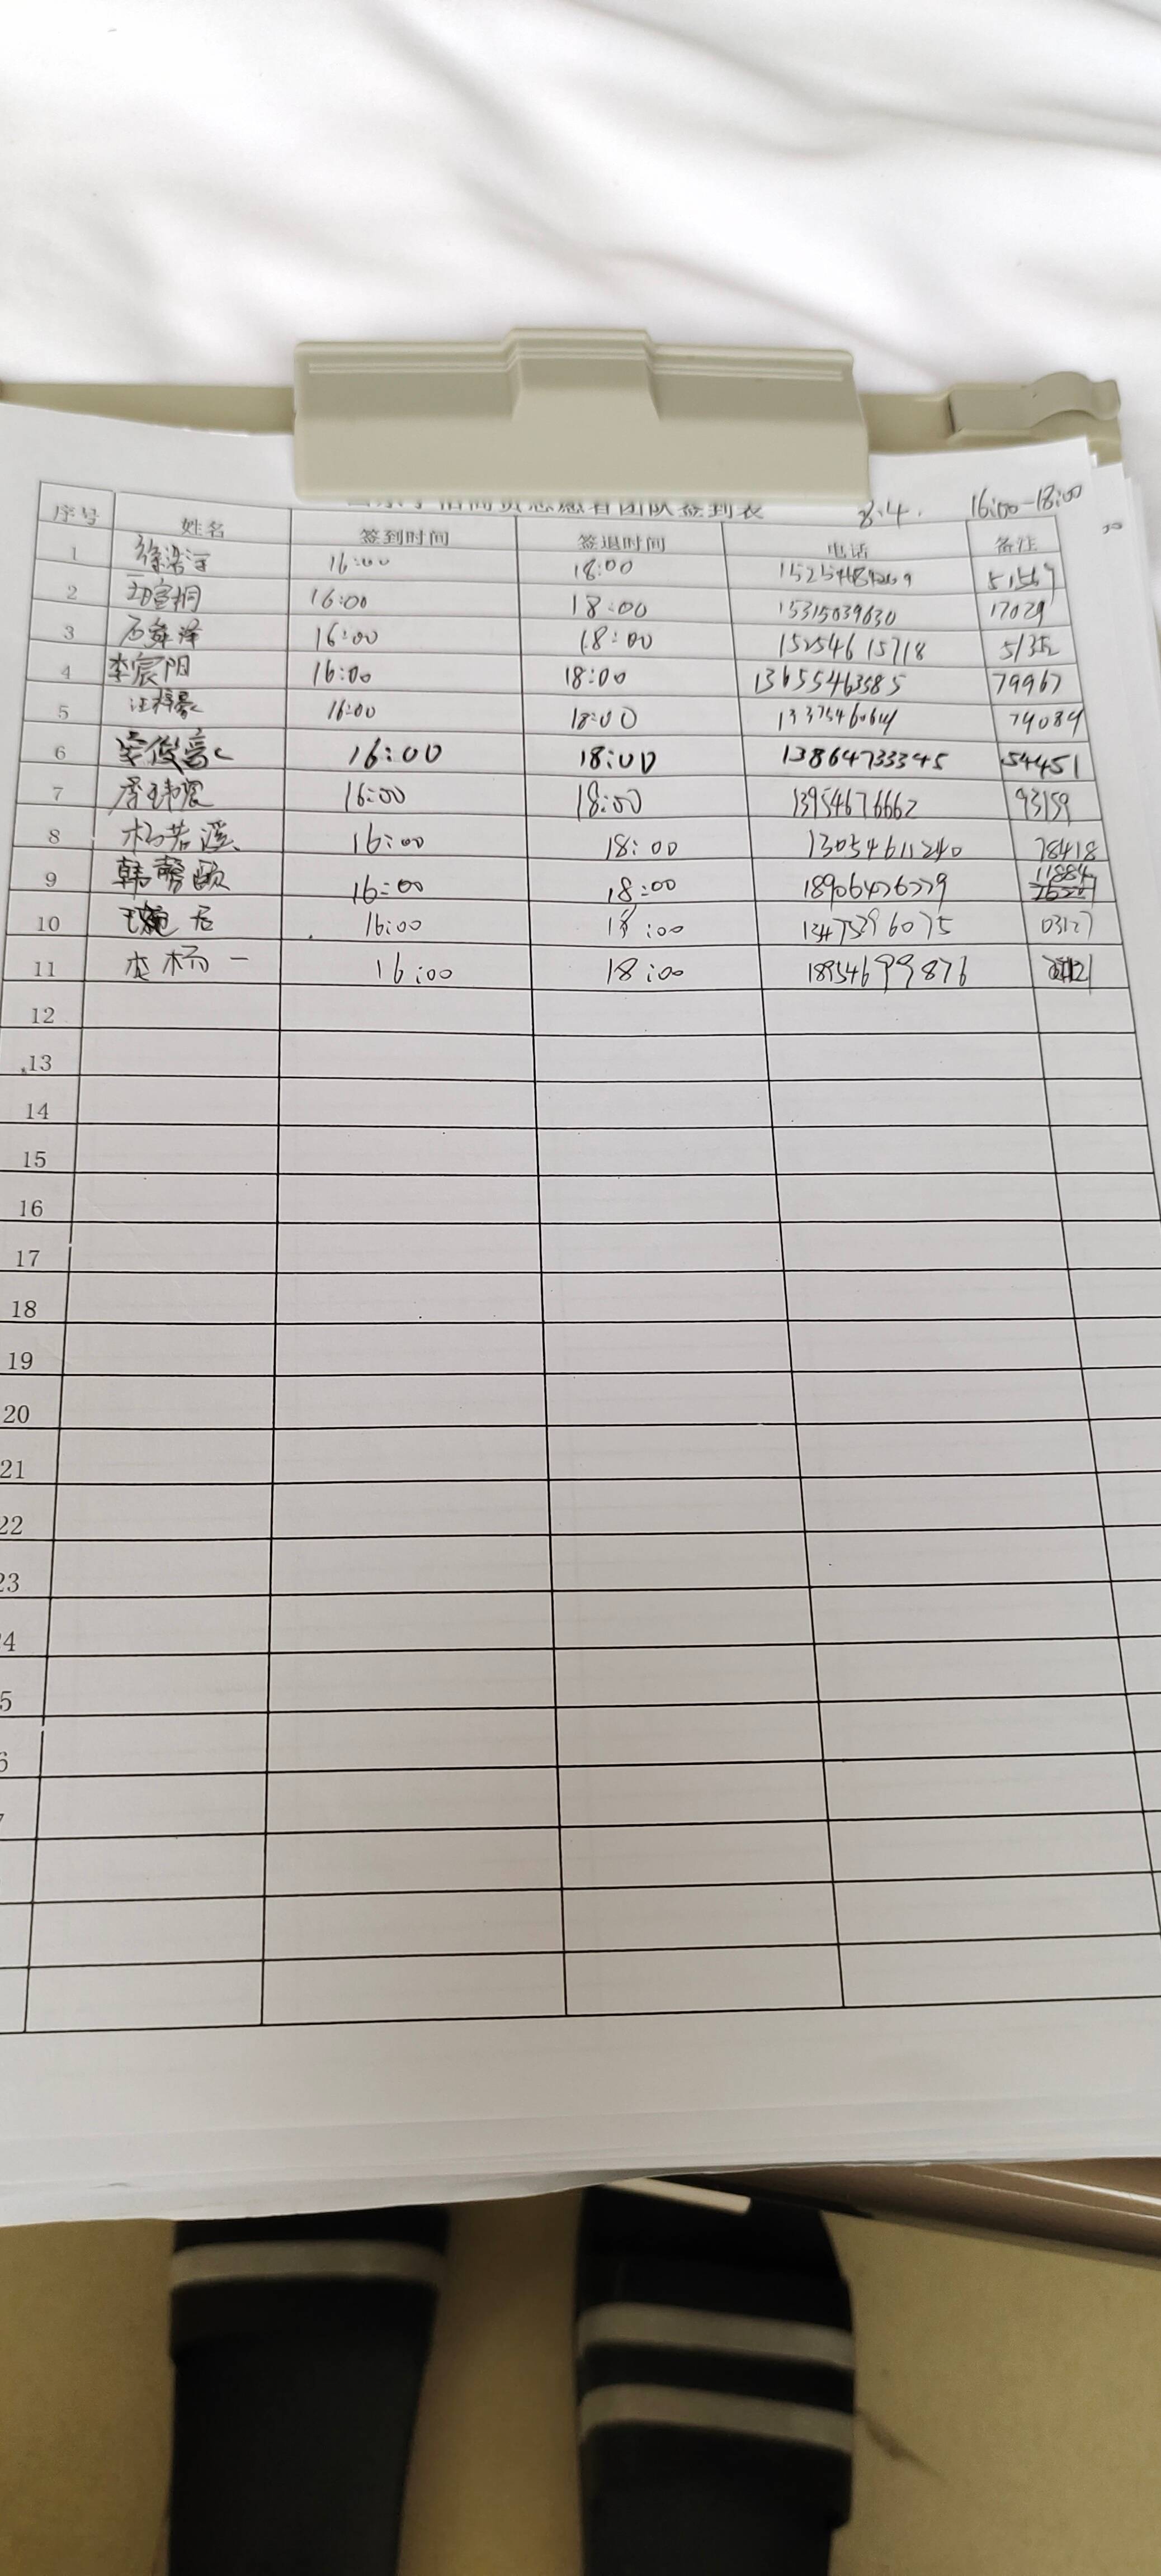 志愿者团队签到表 8.4. 16:00-18:00
序号 姓名 签到时间 签退时间 电话 备注
1 16:00 18:00
2 16:00 18:00 15315039630 17029
3 石舜泽 16:00 18:00 15254615718 51352
4 李宸阳 16:00 18:00 13655463585 79967
5 汪梓豪 16:00 18:00 74084
6 16:00 18:00 13864733345 54451
7 16:00 18:00 13954676662 93159
8 杨若溪 16:00 18:00 13054611240 78418
9 韩馨欧 16:00 18:00 18906476779 11884
10 16:00 18:00 13475396075 03127
11 杨一 16:00 18:00 18954699876
12
13
14
15
16
17
18
19
20
21
22
23
4
5
6
7